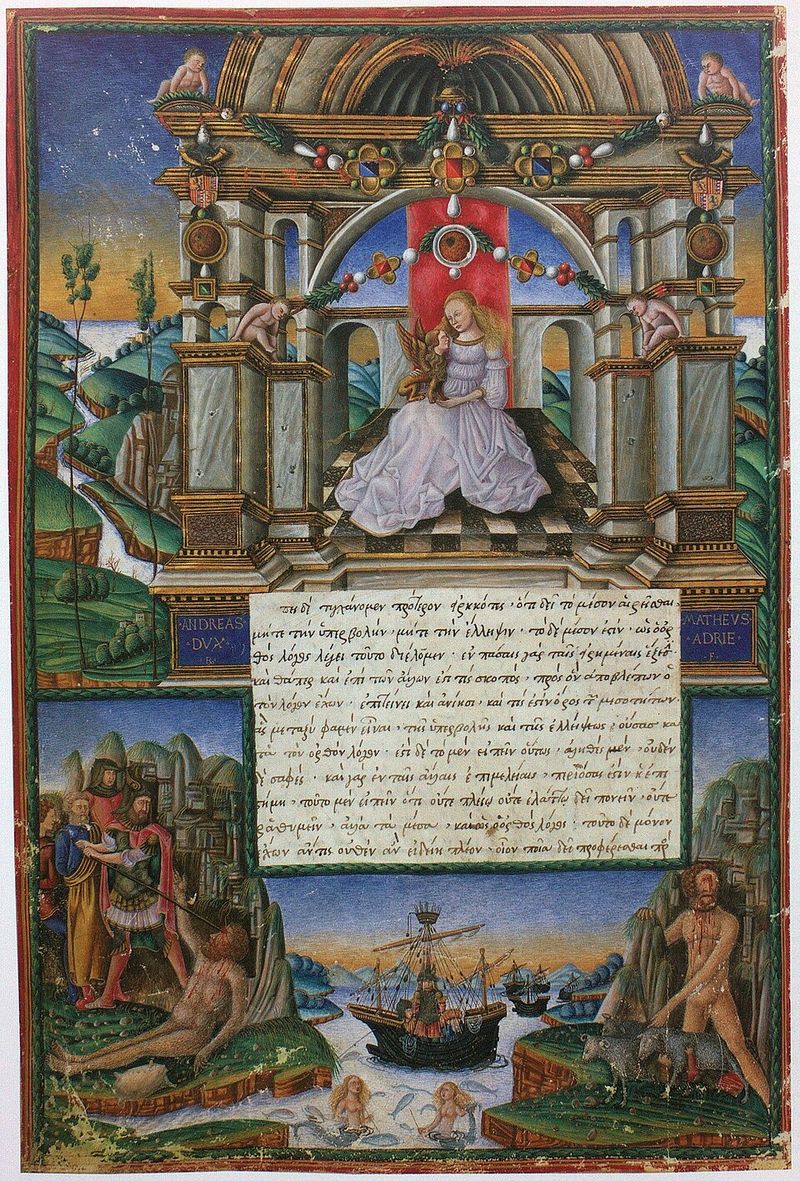 πεὶ δὲ τυγχάνομεν πρότερον εἰρηκότες · ὅτι δεῖ τὸ μέσον αἱρεῖσθαι ·
μήτε τὴν ὑπερβολὴν · μήτε τὴν ἔλλειψιν · τὸ δὲ μέσον ἐστὶν · ὡς ὁ ὀρ
θὸς λόγος λέγει τοῦτο διέλωμεν · ἐν πάσαις γὰρ ταῖς εἰρημέναις ἕξεσι
καθάπερ καὶ ἐπὶ τῶν ἄλλων ἐστί τις σκοπὸς · πρὸς ὃν ἀποβλέπων ὁ
τὸν λόγον ἔχων · ἐπιτείνει καὶ ἀνίησι · καί τις ἐστὶν ὅρος τῶν μεσοτήτων
ἃς μεταξύ φαμεν εἶναι · τῆς ὑπερβολῆς καὶ τῆς ἐλλείψεως · οὔσας κα
τὰ τὸν ὀρθὸν λόγον · ἐστὶ δὲ τὸ μὲν εἰπεῖν οὕτως · ἀληθὲς μὲν · οὐδὲν
δὲ σαφές · καὶ γὰρ ἐν ταῖς ἄλλαις ἐπιμελείαις · περὶ ὅσας ἐστὶν ἐπι
στήμη · τοῦτο μὲν εἰπεῖν ὅτι οὔτε πλείω οὔτε ἐλάττω δεῖ πονεῖν · οὔτε
ῥᾳθυμεῖν · ἀλλὰ τὰ μέσα · καὶ ὡς ὁ ὀρθὸς λόγος · τοῦτο δὲ μόνον
ἔχων ἄν τις οὐθὲν ἂν εἰδείη πλέον · οἷον ποῖα δεῖ προσφέρεσθαι πρὸς
ANDREAS
DVX
B
MATHEVS
ADRIE
F